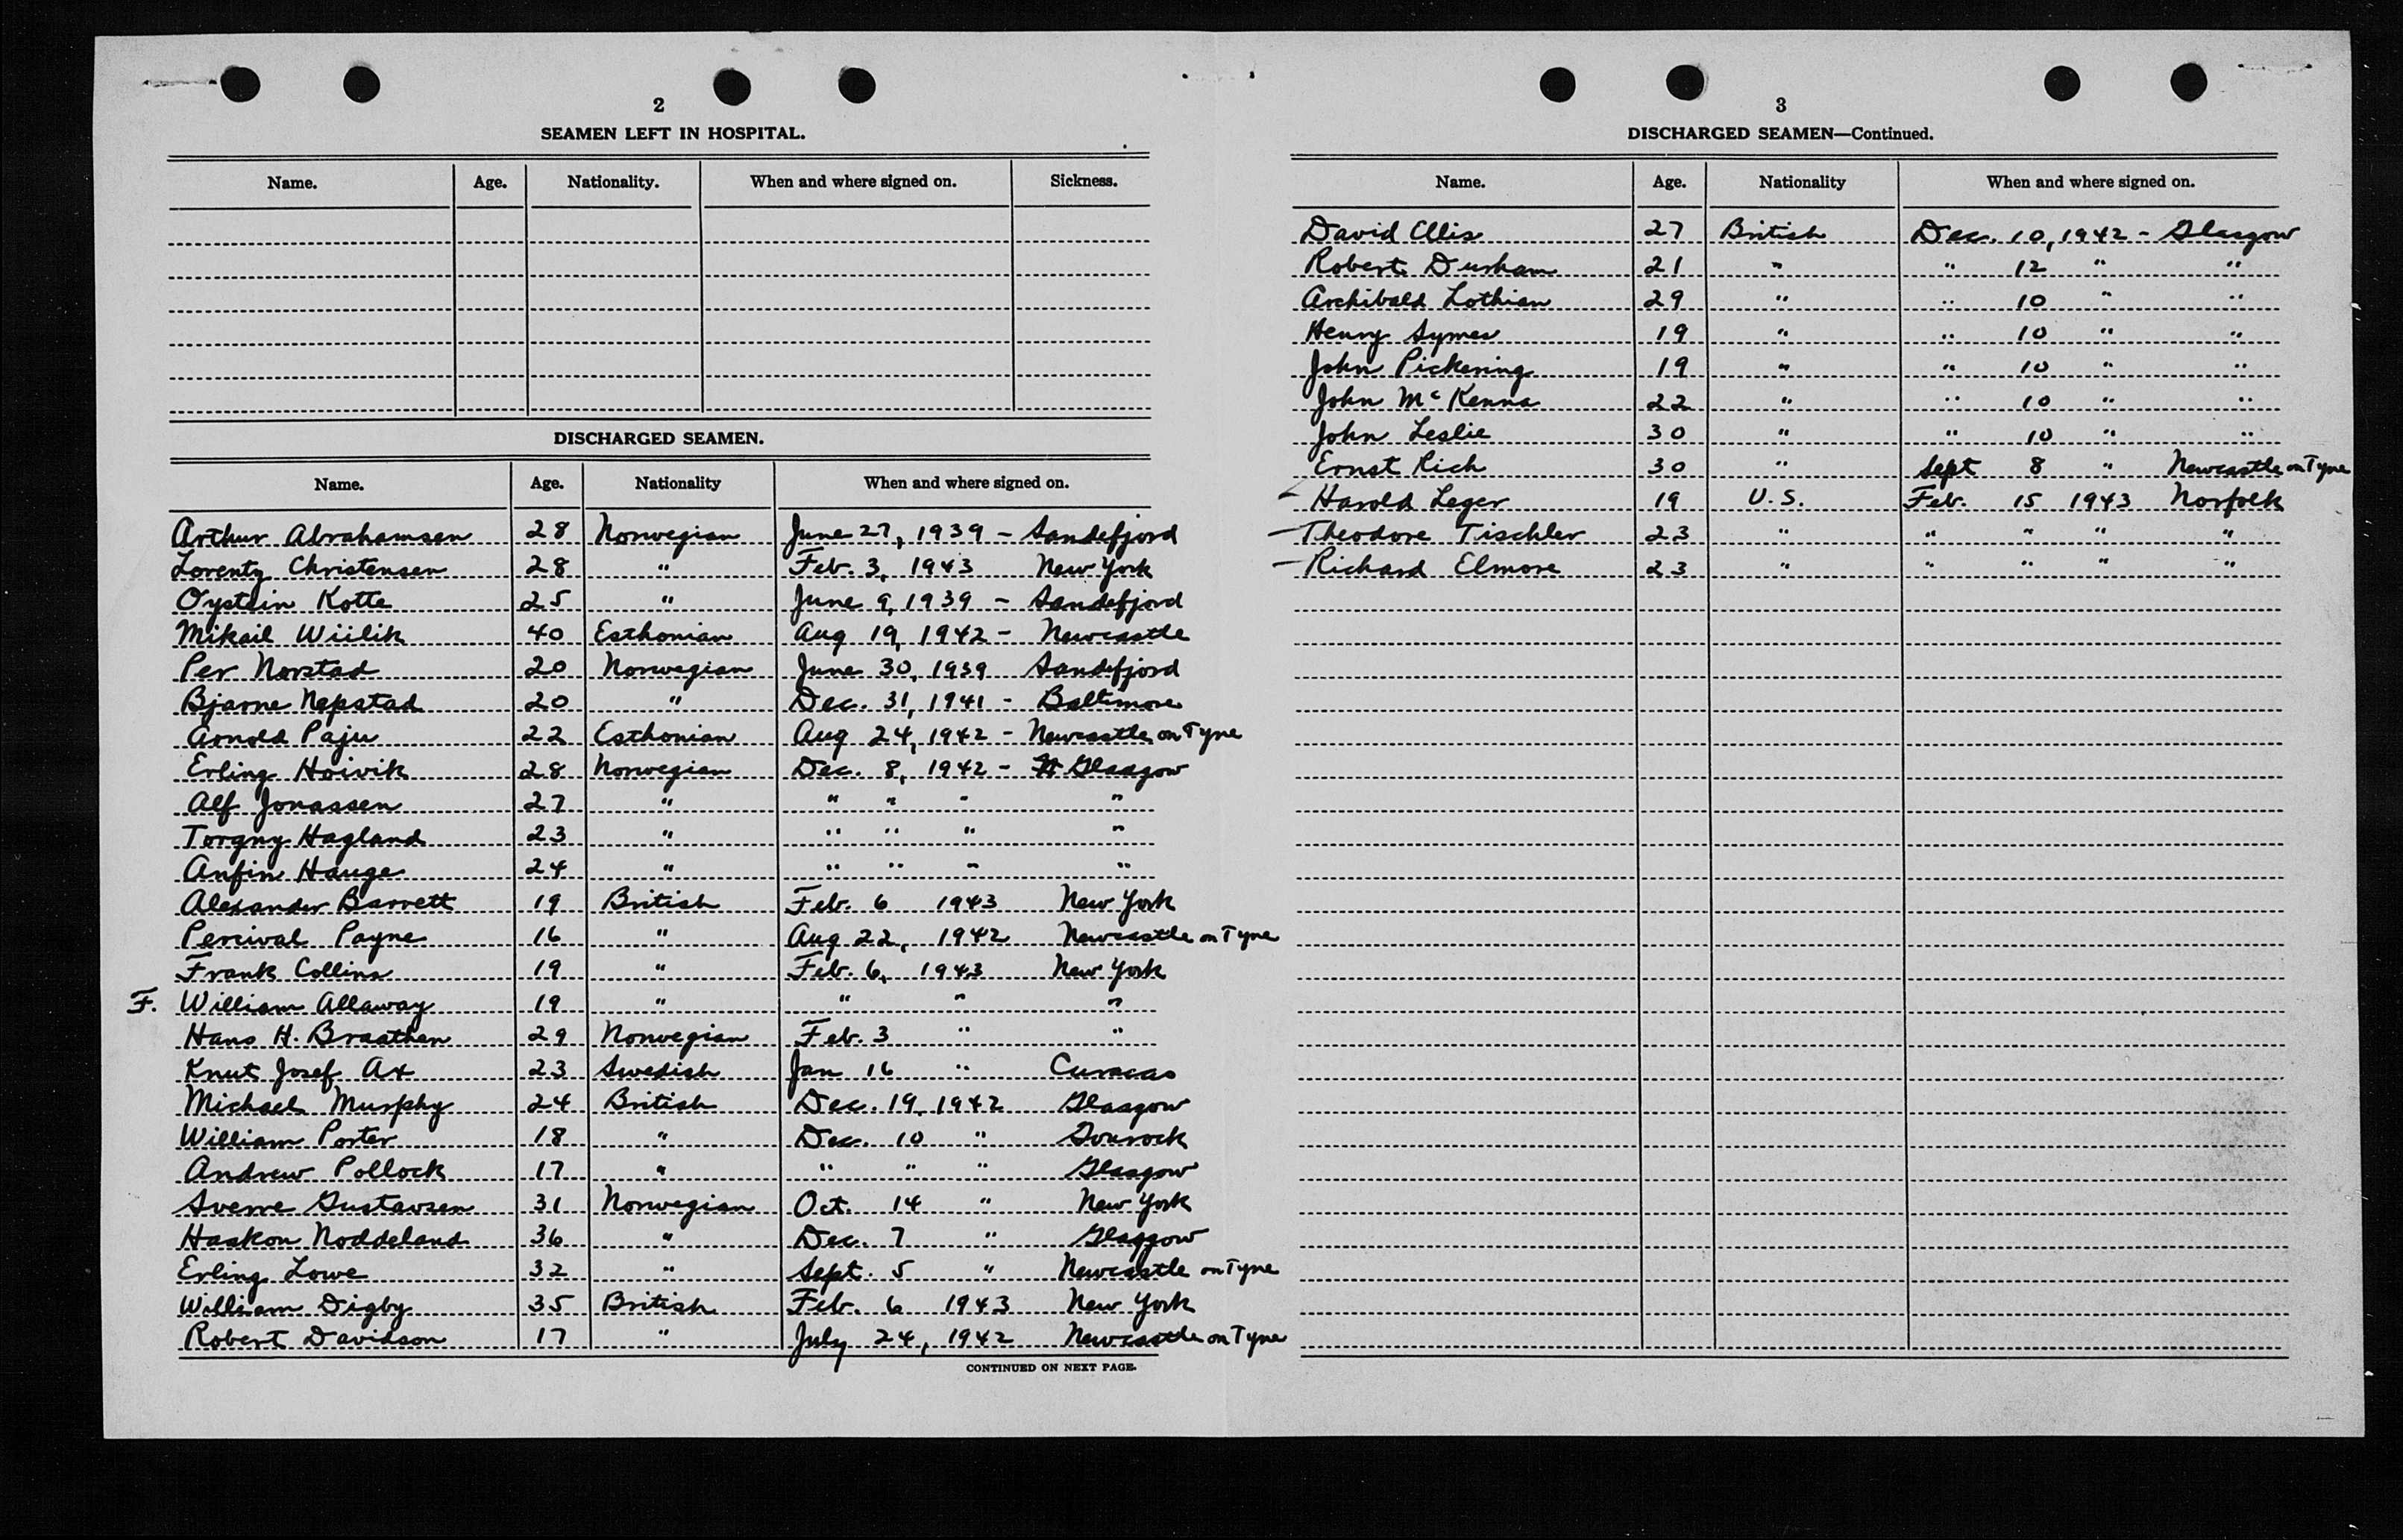 2
SEAMEN LEFT IN HOSPITAL.
Name. Age. Nationality. When and where signed on. Sickness.
DISCHARGED SEAMEN.
Name. Age. Nationality When and where signed on.
Arthur Abrahamsen 28 Norwegian June 27, 1939 - Sandefjord
Lorentz Christensen 28 " Feb. 3, 1943 New York
Oystein Kotte 25 " June 9, 1939 - Sandefjord
Mikail Wiilik 40 Esthonian Aug 19, 1942 - Newcastle
Per Norstad 20 Norwegian June 30, 1939 Sandefjord
Bjarne Nepstad 20 " Dec. 31, 1941 - Baltimore
Arnold Paju 22 Esthonian Aug 24, 1942 - Newcastle on Tyne
Erling Hoivik 28 Norwegian Dec. 8, 1942 - Glasgow
Alf Jonassen 27 " " " " "
Torgny Hagland 23 " " " " "
Anfin Hauge 24 " " " " "
Alexander Barrett 19 British Feb. 6 1943 New York
Percival Payne 16 " Aug 22, 1942 Newcastle on Tyne
Frank Collins 19 " Feb. 6, 1943 New York
F. William Allaway 19 " " " "
Hans H. Braathen 29 Norwegian Feb. 3 " "
Knut Josef Ax 23 Swedish Jan 16 " Curacao
Michael Murphy 24 British Dec. 19, 1942 Glasgow
William Porter 18 " Dec. 10 " Gourock
Andrew Pollock 17 " " " " Glasgow
Sverre Gustavsen 31 Norwegian Oct. 14 " New York
Haakon Noddeland 36 " Dec. 7 " Glasgow
Erling Lowe 32 " Sept. 5 " Newcastle on Tyne
William Digby 35 British Feb. 6 1943 New York
Robert Davidson 17 " July 24, 1942 Newcastle on Tyne
CONTINUED ON NEXT PAGE.
3
DISCHARGED SEAMEN—Continued.
Name. Age. Nationality When and where signed on.
David Ellis 27 British Dec. 10, 1942 - Glasgow
Robert Durham 21 " " 12 " "
Archibald Lothian 29 " " 10 " "
Henry Symes 19 " " 10 " "
John Pickering 19 " " 10 " "
John McKenna 22 " " 10 " "
John Leslie 30 " " 10 " "
Ernst Rich 30 " Sept 8 " Newcastle on Tyne
Harold Leger 19 U.S. Feb. 15 1943 Norfolk
- Theodore Tischler 23 " " " " "
- Richard Elmore 23 " " " " "